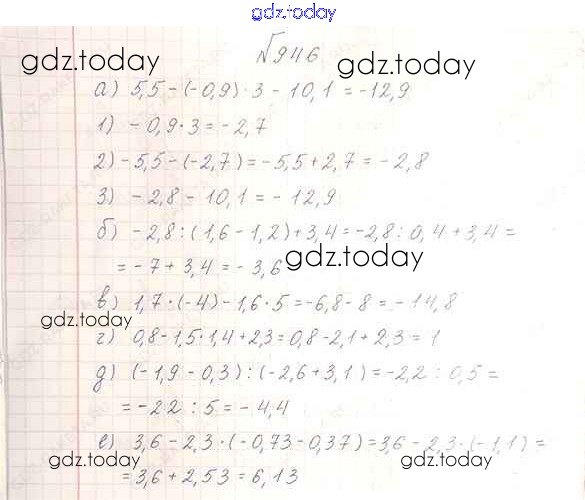 gdz.today
№946
gdz.today gdz.today
а) 5,5 - (-0,9) · 3 - 10,1 = -12,9
1) - 0,9 · 3 = - 2,7
2) - 5,5 - (-2,7) = -5,5 + 2,7 = - 2,8
3) - 2,8 - 10,1 = - 12,9
б) -2,8 : (1,6 - 1,2) + 3,4 = -2,8 : 0,4 + 3,4 =
= -7 + 3,4 = - 3,6
gdz.today
в) 1,7 · (-4) - 1,6 · 5 = -6,8 - 8 = - 14,8
gdz.today
г) 0,8 - 1,5 · 1,4 + 2,3 = 0,8 - 2,1 + 2,3 = 1
д) (-1,9 - 0,3) : (-2,6 + 3,1) = -2,2 : 0,5 =
= -22 : 5 = - 4,4
е) 3,6 - 2,3 · (-0,73 - 0,37) = 3,6 - 2,3 · (-1,1) =
gdz.today gdz.today
= 3,6 + 2,53 = 6,13